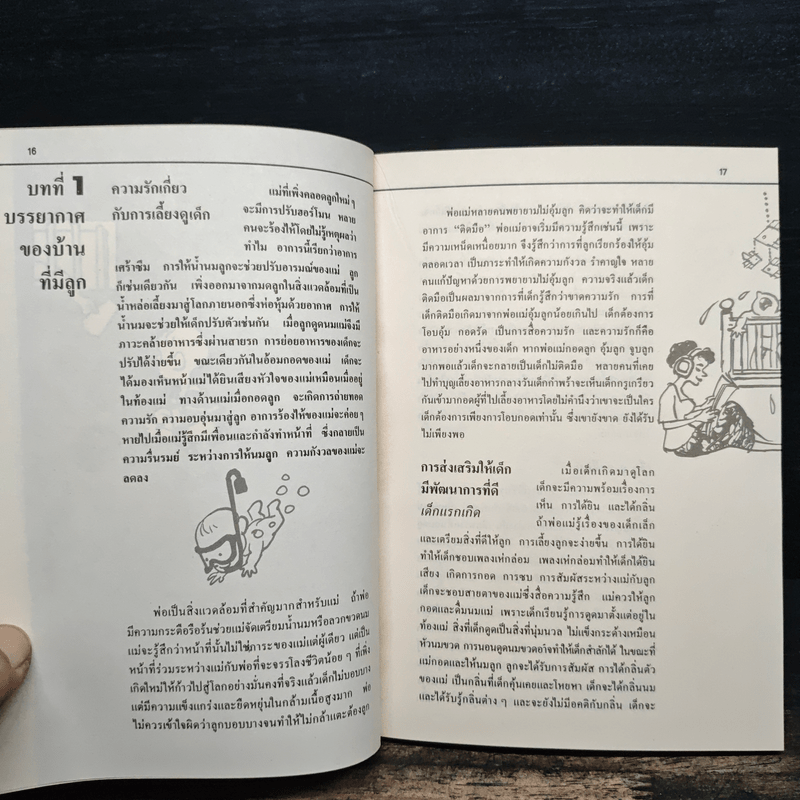 16
บทที่ 1
บรรยากาศ
ของบ้าน
ที่มีลูก
ความรักเกี่ยว
กับการเลี้ยงดูเด็ก
แม่ที่เพิ่งคลอดลูกใหม่ๆ
จะมีการปรับฮอร์โมน หลาย
คนจะร้องไห้โดยไม่รู้เหตุผลว่า
ทำไม อาการนี้เรียกว่าอาการ
เศร้าซึม การให้น้ำนมลูกจะช่วยปรับอารมณ์ของแม่ ลูก
ก็เช่นเดียวกัน เพิ่งออกมาจากมดลูกในสิ่งแวดล้อมที่เป็น
น้ำหล่อเลี้ยงมาสู่โลกภายนอกซึ่งห่อหุ้มด้วยอากาศ การให้
น้ำนมจะช่วยให้เด็กปรับตัวเช่นกัน เมื่อลูกดูดนมแม่จึงมี
ภาวะคล้ายอาหารซึ่งผ่านสายรก การย่อยอาหารของเด็กจะ
ปรับได้ง่ายขึ้น ขณะเดียวกันในอ้อมกอดของแม่ เด็กจะ
ได้มองเห็นหน้าแม่ได้ยินเสียงหัวใจของแม่เหมือนเมื่ออยู่
ในท้องแม่ ทางด้านแม่เมื่อกอดลูก จะเกิดการถ่ายทอด
ความรัก ความอบอุ่นมาสู่ลูก อาการร้องไห้ของแม่จะค่อยๆ
หายไปเมื่อแม่รู้สึกมีเพื่อนและกำลังทำหน้าที่ ซึ่งกลายเป็น
ความรื่นรมย์ ระหว่างการให้นมลูก ความกังวลของแม่จะ
ลดลง
พ่อเป็นสิ่งแวดล้อมที่สำคัญมากสำหรับแม่ ถ้าพ่อ
มีความกระตือรือร้นช่วยแม่จัดเตรียมน้ำนมหรือลวกขวดนม
แม่จะรู้สึกว่าหน้าที่นั้นไม่ใช่ภาระของแม่แต่ผู้เดียว แต่เป็น
หน้าที่ร่วมระหว่างแม่กับพ่อที่จะจรรโลงชีวิตน้อย ๆ ที่เพิ่ง
เกิดใหม่ให้ก้าวไปสู่โลกอย่างมั่นคงที่จริงแล้วเด็กไม่บอบบาง
แต่มีความแข็งแกร่งและยืดหยุ่นในกล้ามเนื้อสูงมาก พ่อ
ไม่ควรเข้าใจผิดว่าลูกบอบบางจนทำให้ไม่กล้าแตะต้องลูก
17
พ่อแม่หลายคนพยายามไม่อุ้มลูก คิดว่าจะทำให้เด็กมี
อาการ “ติดมือ” พ่อแม่อาจเริ่มมีความรู้สึกเช่นนี้ เพราะ
มีความเหน็ดเหนื่อยมาก จึงรู้สึกว่าการที่ลูกเรียกร้องให้อุ้ม
ตลอดเวลา เป็นภาระทำให้เกิดความกังวล รำคาญใจ หลาย
คนแก้ปัญหาด้วยการพยายามไม่อุ้มลูก ความจริงแล้วเด็ก
ติดมือเป็นผลมาจากการที่เด็กรู้สึกว่าขาดความรัก การที่
เด็กติดมือเกิดมาจากพ่อแม่อุ้มลูกน้อยเกินไป เด็กต้องการ
โอบอุ้ม กอดรัด เป็นการสื่อความรัก และความรักก็คือ
อาหารอย่างหนึ่งของเด็ก หากพ่อแม่กอดลูก อุ้มลูก จูบลูก
มากพอแล้วเด็กจะกลายเป็นเด็กไม่ติดมือ หลายคนที่เคย
ไปทำบุญเลี้ยงอาหารกลางวันเด็กกำพร้าจะเห็นเด็กกรูเกรียว
กันเข้ามากอดผู้ที่ไปเลี้ยงอาหารโดยไม่คำนึงว่าเขาจะเป็นใคร
เด็กต้องการเพียงการโอบกอดเท่านั้น ซึ่งเขายังขาด ยังได้รับ
ไม่เพียงพอ
การส่งเสริมให้เด็ก
มีพัฒนาการที่ดี
เด็กแรกเกิด
เมื่อเด็กเกิดมาดูโลก
เด็กจะมีความพร้อมเรื่องการ
เห็น การได้ยิน และได้กลิ่น
ถ้าพ่อแม่รู้เรื่องของเด็กเล็ก
และเตรียมสิ่งที่ดีให้ลูก การเลี้ยงลูกจะง่ายขึ้น การได้ยิน
ทำให้เด็กชอบเพลงเห่กล่อม เพลงเห่กล่อมทำให้เด็กได้ยิน
เสียง เกิดการกอด การซบ การสัมผัสระหว่างแม่กับลูก
เด็กจะชอบสายตาของแม่ซึ่งสื่อความรู้สึก แม่ควรให้ลูก
กอดและดื่มนมแม่ เพราะเด็กเรียนรู้การดูดมาตั้งแต่อยู่ใน
ท้องแม่ สิ่งที่เด็กดูดเป็นสิ่งที่นุ่มนวล ไม่แข็งกระด้างเหมือน
หัวนมขวด การนอนดูดนมขวดอาจทำให้เด็กสำลักได้ ในขณะที่
แม่กอดและให้นมลูก ลูกจะได้รับการสัมผัส การได้กลิ่นตัว
ของแม่ เป็นกลิ่นที่เด็กคุ้นเคยและโหยหา เด็กจะได้กลิ่นนม
และได้รับรู้กลิ่นต่าง ๆ และจะยังไม่มีอคติกับกลิ่น เด็กจะ